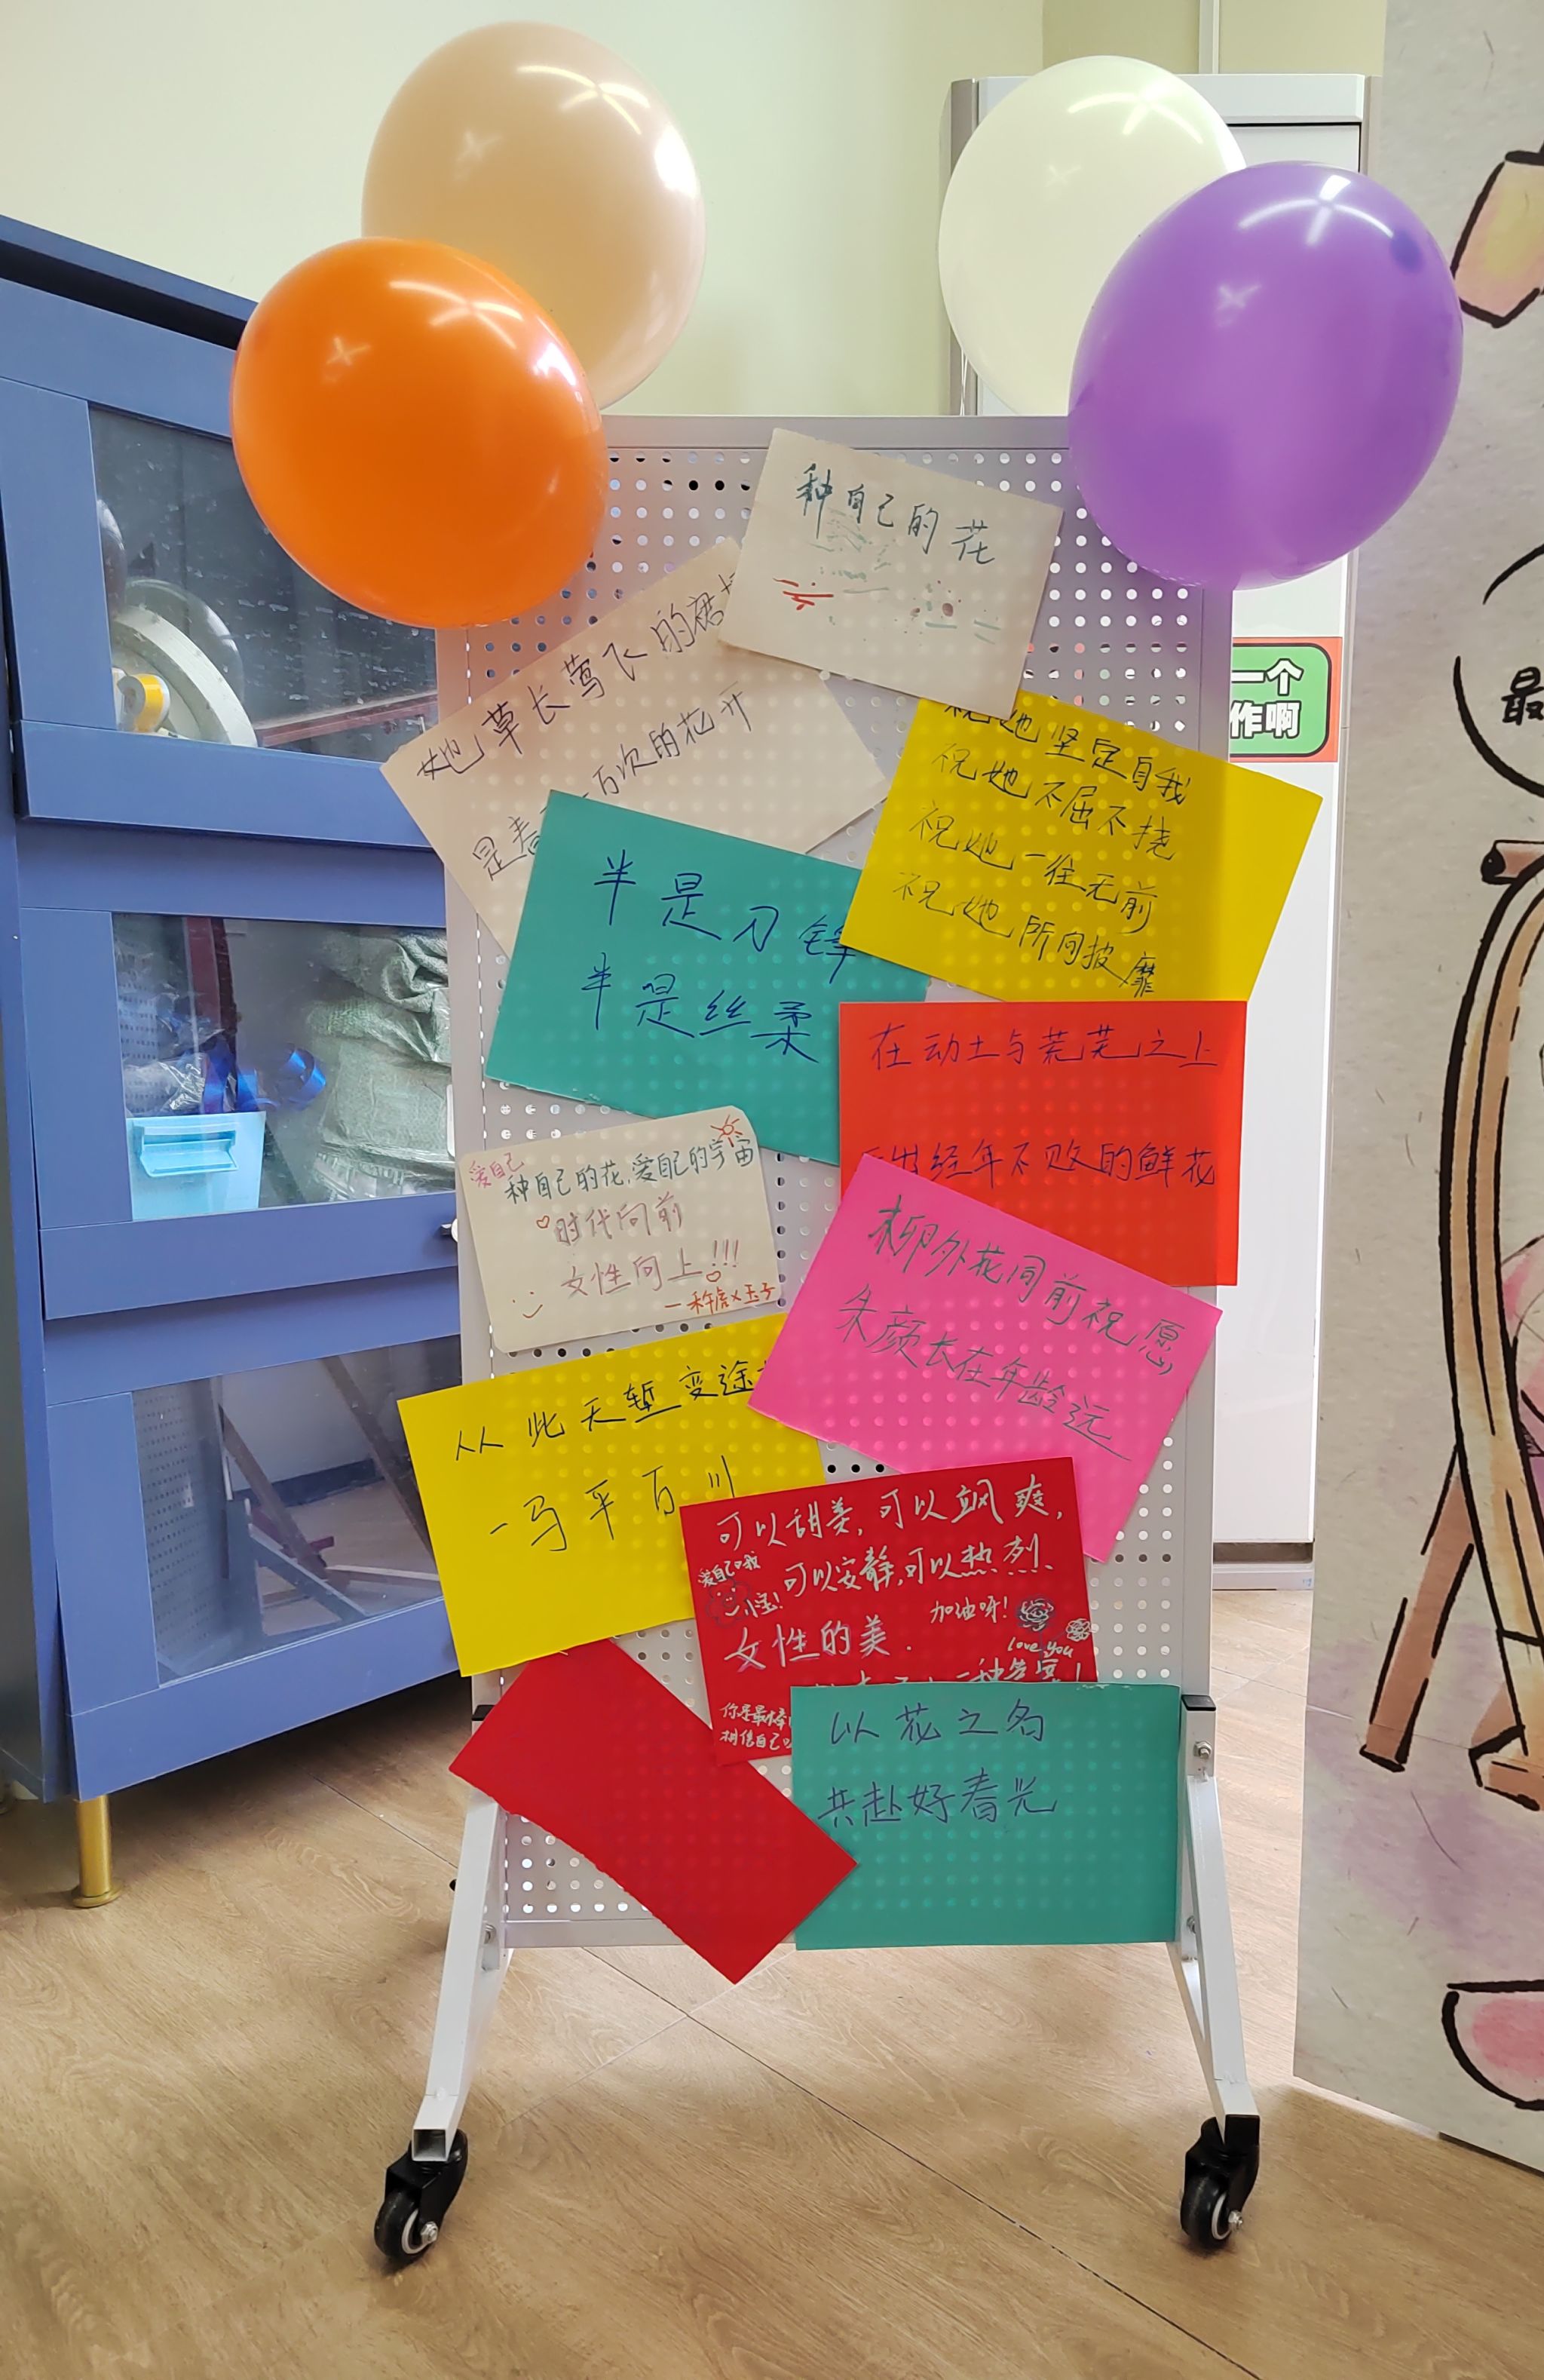 种自己的花
她草长莺飞的裙
是春 百次的花开
祝她坚定自我
祝她不屈不挠
祝她一往无前
祝她所向披靡
半是刀锋
半是丝柔
在动土与荒芜之上
经年不败的鲜花
爱自己
种自己的花,爱自己的宇宙
时代向前
女性向上!!!
柳外花间前祝愿
朱颜长在年龄远
从此天堑变途
一马平百川
可以甜美,可以飒爽,
爱自己哦
可以安静,可以热烈、
小宝!
加油呀!
女性的美.
love you
你是最棒
相信自己
以花之名
共赴好春光
一个
作啊
最